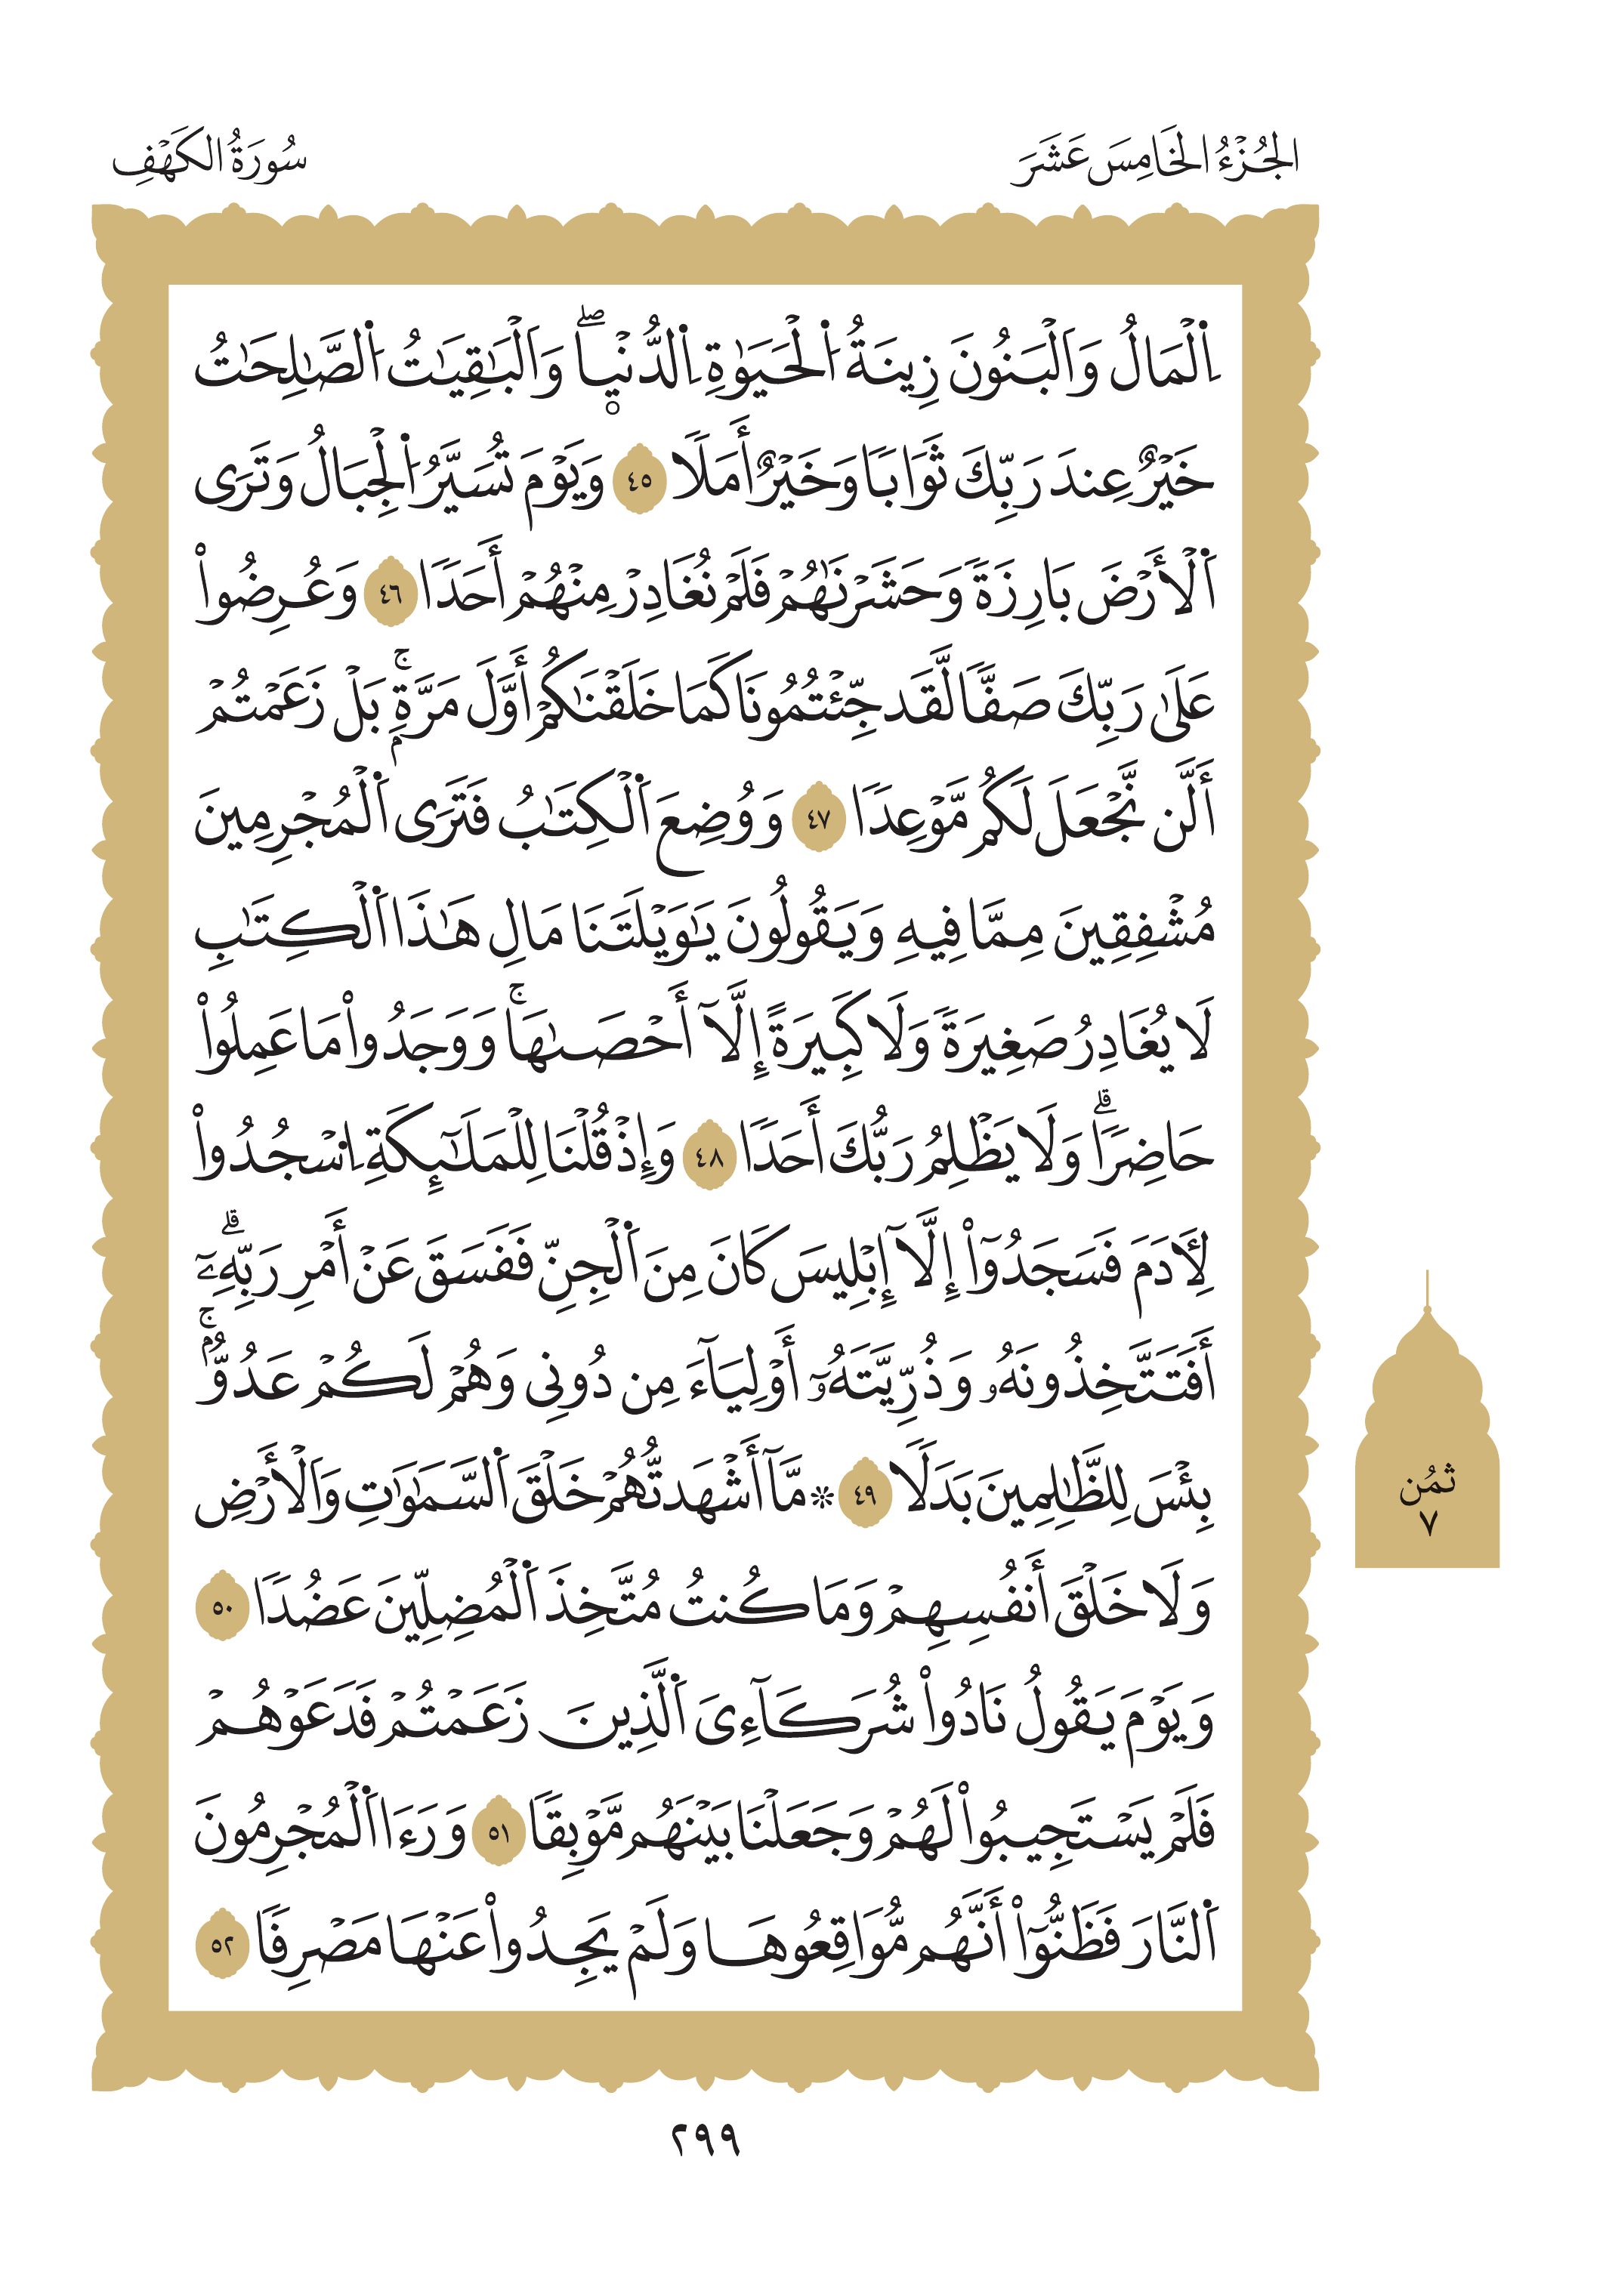 الجُزْءُ الخَامِسَ عَشَرَ
سُورَةُ الكَهْفِ
اِ۬لْمَالُ وَالْبَنُونَ زِينَةُ اُ۬لْحَيَوٰةِ اِ۬لدُّنْي۪اۖ وَالْبَٰقِيَٰتُ اُ۬لصَّٰلِحَٰتُ
خَيْرٌ عِندَ رَبِّكَ ثَوَاباٗ وَخَيْرٌ أَمَلاٗ ٤٥ وَيَوْمَ تُسَيَّرُ اُ۬لْجِبَالُ وَتَرَى
اَ۬لْأَرْضَ بَارِزَةٗ وَحَشَرْنَٰهُمْ فَلَمْ نُغَادِرْ مِنْهُمْ أَحَداٗ ٤٦ وَعُرِضُواْ
عَلَىٰ رَبِّكَ صَفّاٗ لَّقَد جِّئْتُمُونَا كَمَا خَلَقْنَٰكُمْ أَوَّلَ مَرَّةِۢۚ بَلْ زَعَمْتُمْ
أَلَّن نَّجْعَلَ لَكُم مَّوْعِداٗ ٤٧ وَوُضِعَ اَ۬لْكِتَٰبُ فَتَرَى اَ۬لْمُجْرِمِينَ
مُشْفِقِينَ مِمَّا فِيهِ وَيَقُولُونَ يَٰوَيْلَتَنَا مَالِ هَٰذَا اَ۬لْكِتَٰبِ
لَا يُغَادِرُ صَغِيرَةٗ وَلَا كَبِيرَةً إِلَّآ أَحْصَىٰهَاۚ وَوَجَدُواْ مَا عَمِلُواْ
حَاضِراٗۗ وَلَا يَظْلِمُ رَبُّكَ أَحَداٗ ٤٨ وَإِذْ قُلْنَا لِلْمَلَٰٓئِكَةِ اِ۟سْجُدُواْ
لِأٓدَمَ فَسَجَدُوٓاْ إِلَّآ إِبْلِيسَ كَانَ مِنَ اَ۬لْجِنِّ فَفَسَقَ عَنْ أَمْرِ رَبِّهِۦٓۗ
أَفَتَتَّخِذُونَهُۥ وَذُرِّيَّتَهُۥٓ أَوْلِيَآءَ مِن دُونِي وَهُمْ لَكُمْ عَدُوُّۢۚ
بِئْسَ لِلظَّٰلِمِينَ بَدَلاٗ ٤٩ ۞ مَّآ أَشْهَدتُّهُمْ خَلْقَ اَ۬لسَّمَٰوَٰتِ وَالْأَرْضِ
وَلَا خَلْقَ أَنفُسِهِمْ وَمَا كُنتُ مُتَّخِذَ اَ۬لْمُضِلِّينَ عَضُداٗ ٥٠
وَيَوْمَ يَقُولُ نَادُواْ شُرَكَآءِىَ اَ۬لَّذِينَ زَعَمْتُمْ فَدَعَوْهُمْ
فَلَمْ يَسْتَجِيبُواْ لَهُمْ وَجَعَلْنَا بَيْنَهُم مَّوْبِقاٗ ٥١ وَرَءَا اَ۬لْمُجْرِمُونَ
اَ۬لنَّارَ فَظَنُّوٓاْ أَنَّهُم مُّوَاقِعُوهَا وَلَمْ يَجِدُواْ عَنْهَا مَصْرِفاٗ ٥٢
ثمُن
٧
٢٩٩